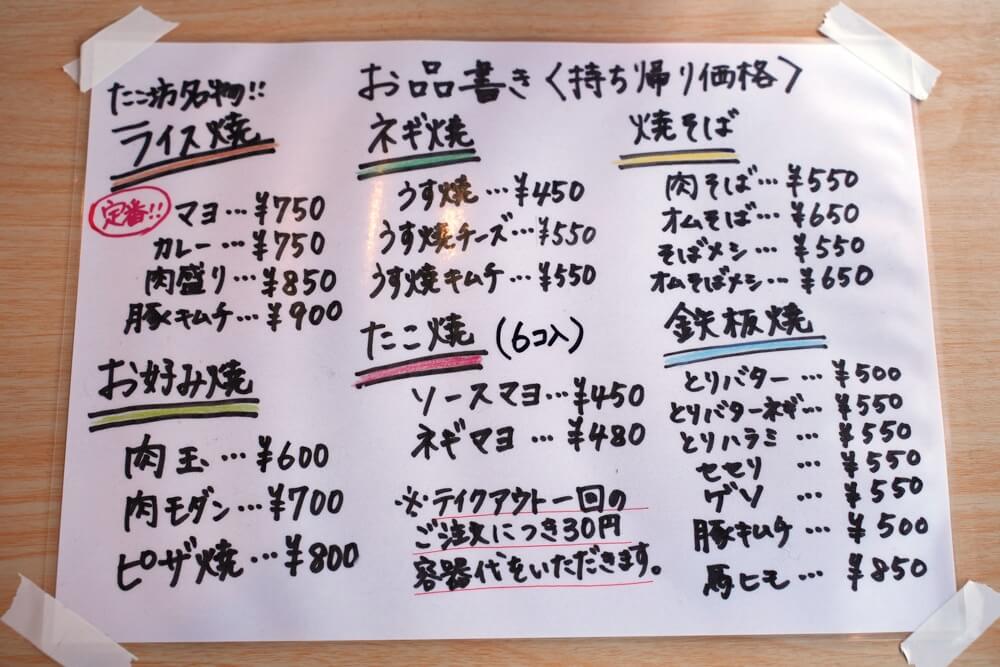 お品書き〈持ち帰り価格〉
たこ坊名物!!
ライス焼
定番!!
マヨ…¥750
カレー…¥750
肉盛り…¥850
豚キムチ…¥900
お好み焼
肉玉…¥600
肉モダン…¥700
ピザ焼…¥800
ネギ焼
うす焼…¥450
うす焼チーズ…¥550
うす焼キムチ…¥550
たこ焼(6コ入)
ソースマヨ…¥450
ネギマヨ…¥480
※テイクアウト一回の
ご注文につき30円
容器代をいただきます。
焼そば
肉そば…¥550
オムそば…¥650
そばメシ…¥550
オムそばメシ…¥650
鉄板焼
とりバター…¥500
とりバターネギ…¥550
とりハラミ…¥550
セセリ…¥550
ゲソ…¥550
豚キムチ…¥500
馬ヒモ…¥850